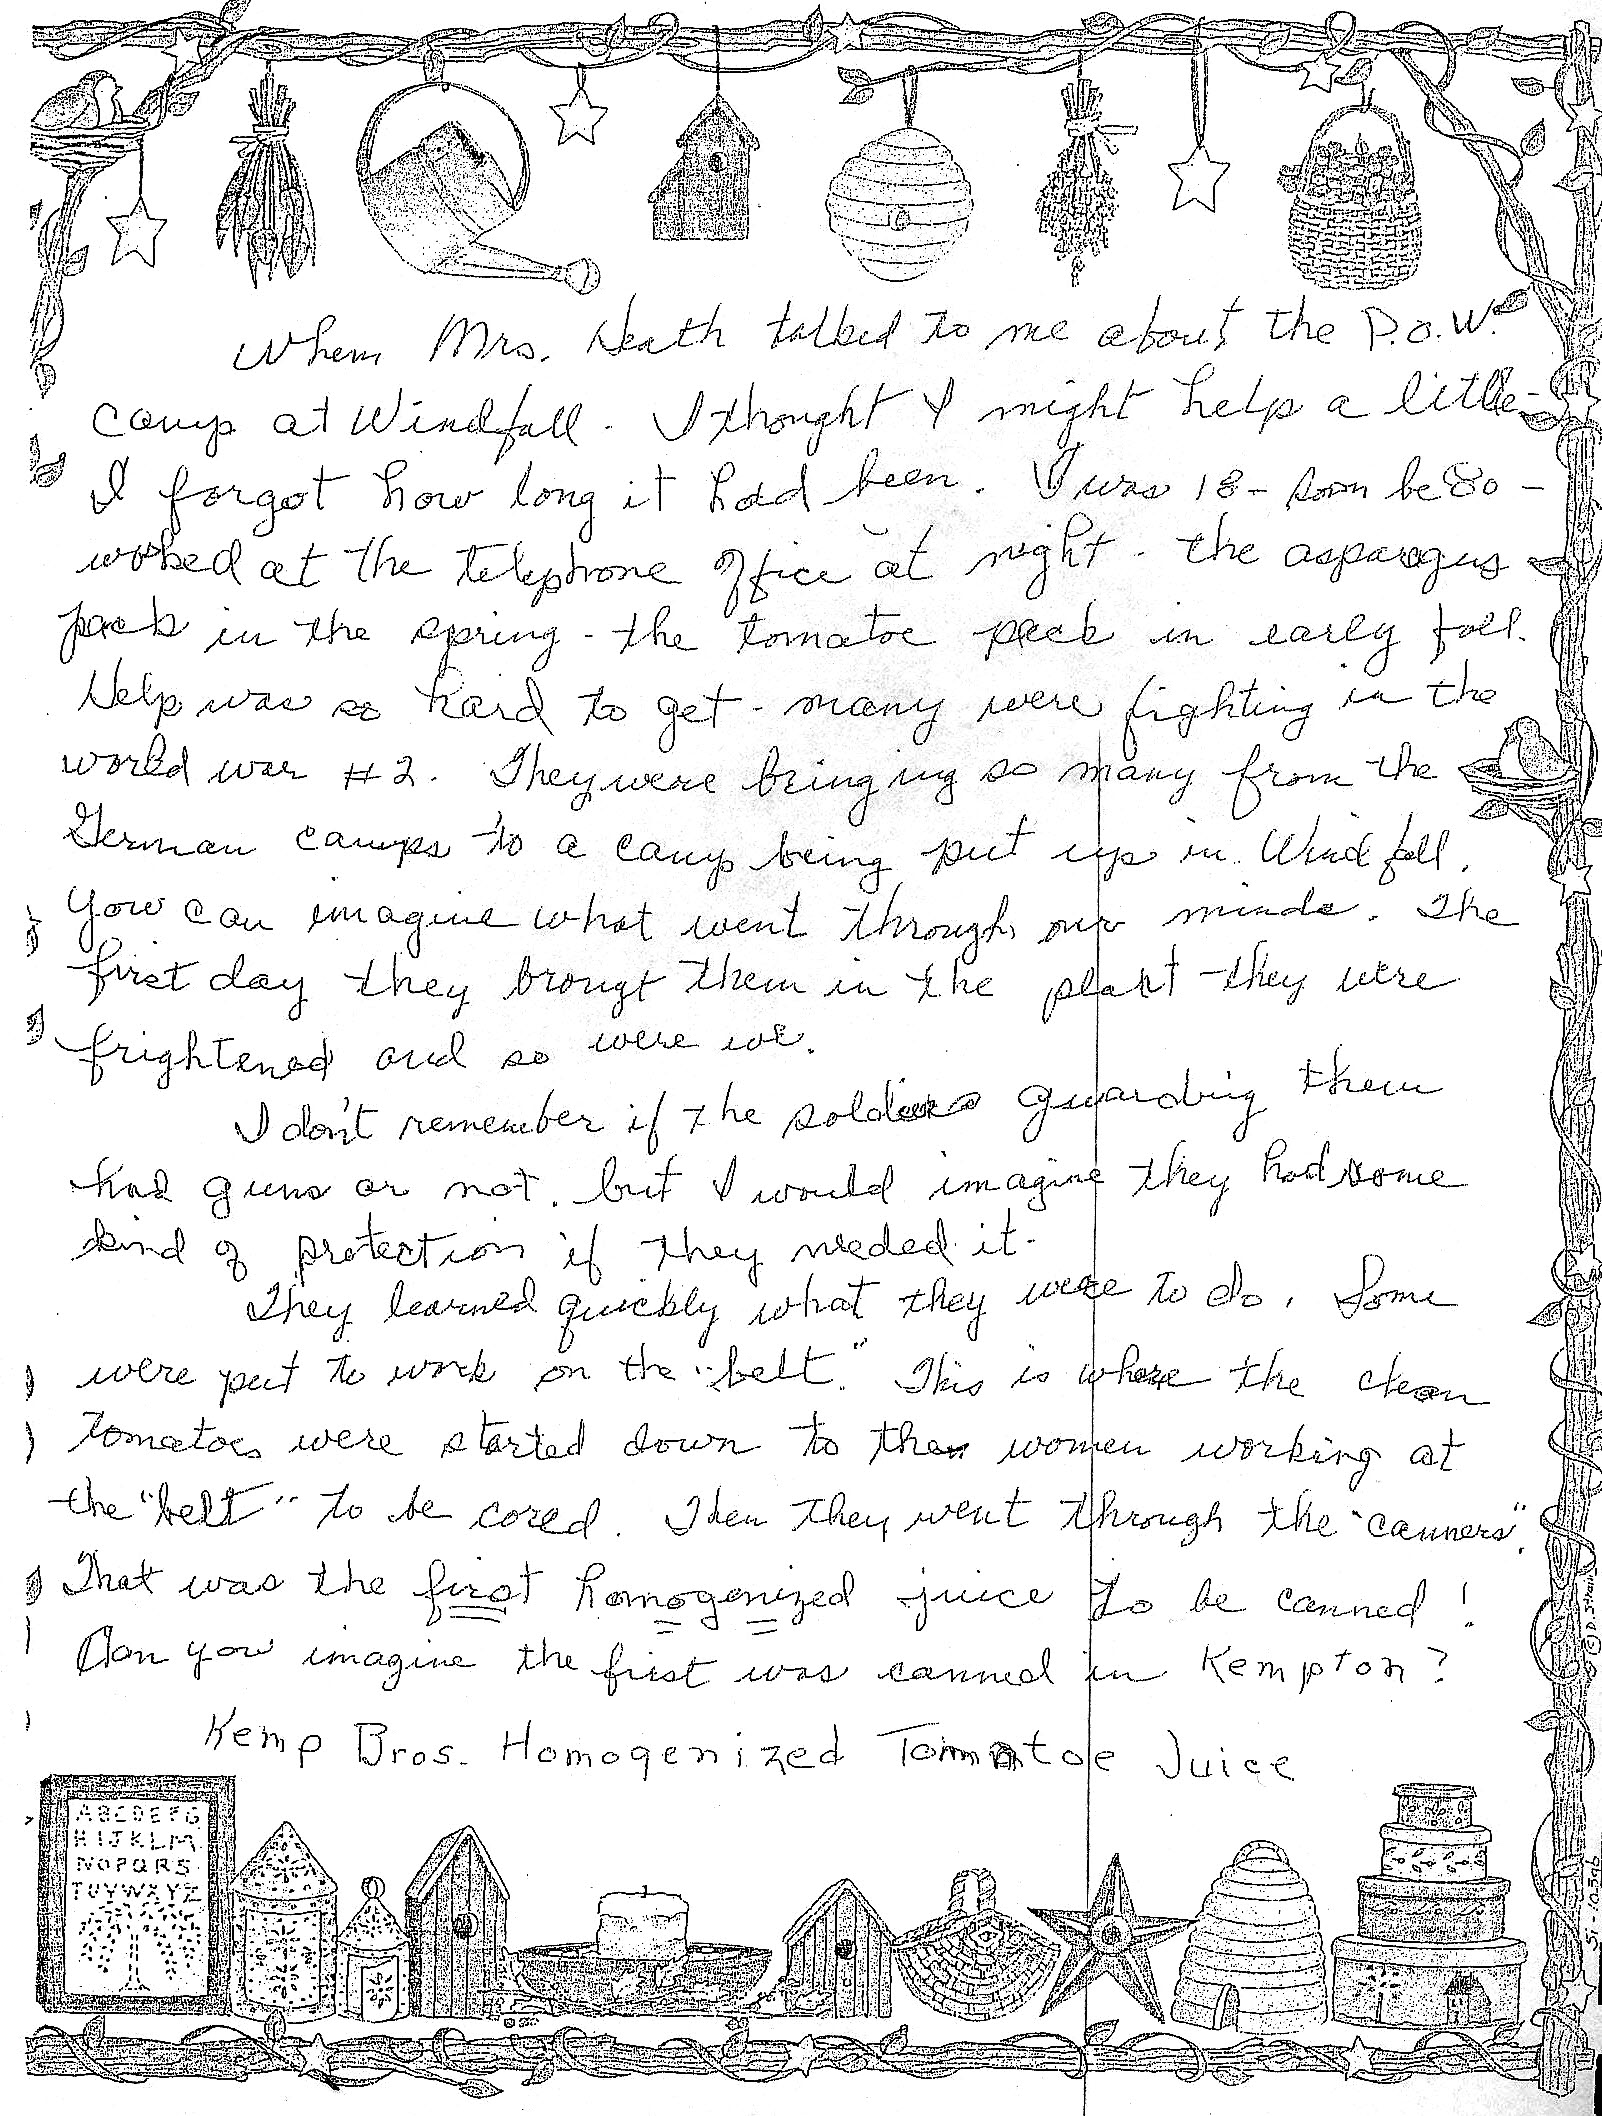 When Mrs. Heath talked to me about the P.O.W.
camp at Windfall. I thought I might help a little -
I forgot how long it had been. I was 18 - soon be 80 -
worked at the telephone office at night - the asparagus
pack in the spring - the tomatoe pack in early fall.
Help was so hard to get - many were fighting in the
world war #2. They were bringing so many from the
German camps to a camp being put up in Windfall.
You can imagine what went through our minds. The
first day they brougt them in the plant they were
frightened and so were we.
I don't remember if the soldiers guarding them
had guns or not, but I would imagine they had some
kind of protection if they needed it.
They learned quickly what they were to do. Some
were put to work on the "belt." This is where the clean
tomatoes were started down to the women working at
the "belt" to be cored. Then they went through the "canners".
That was the first homogenized juice to be canned!
Can you imagine the first was canned in Kempton?
Kemp Bros. Homogenized Tomatoe Juice
ABCDEFG
HIJKLM
NOPQRS
TUVWXYZ